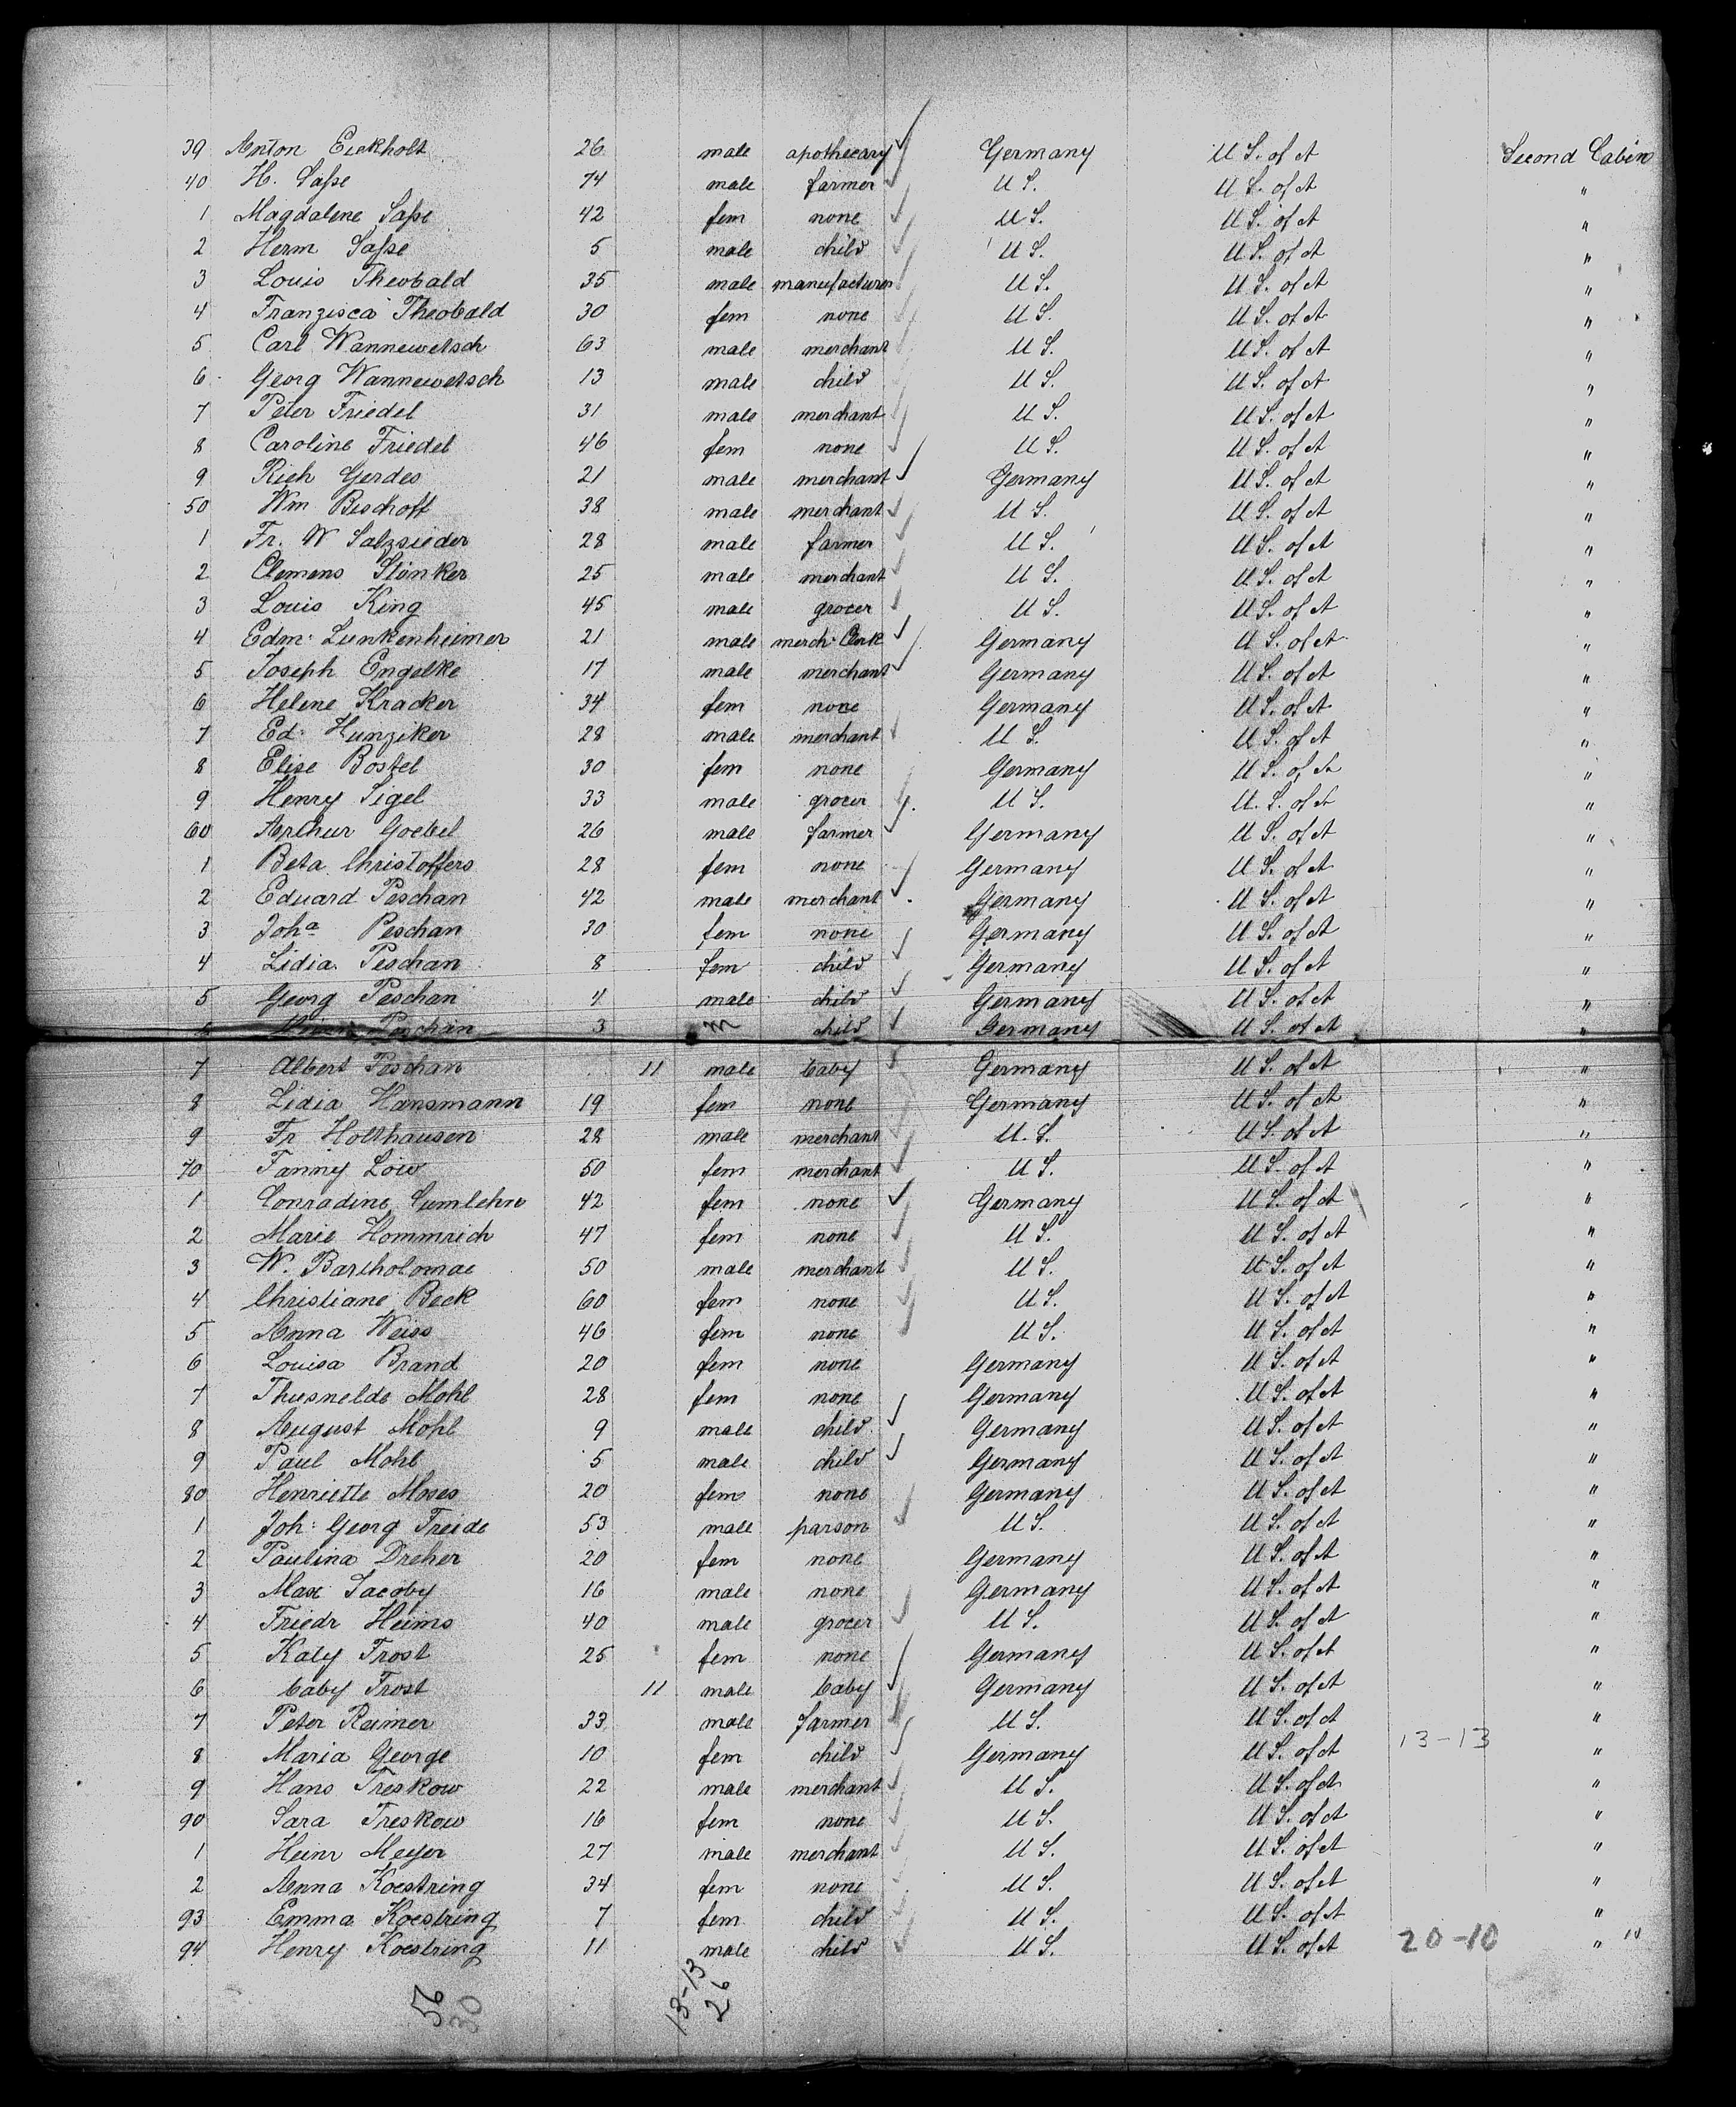 39 Anton Eickholt 26 male apothecary Germany U S. of A Second Cabin
40 H. Saſse 74 male farmer U S. U S. of A "
1 Magdalene Saſse 42 fem none U S. U S. of A "
2 Herm Saſse 5 male child U S. U S. of A "
3 Louis Theobald 35 male manufacturer U S. U S. of A "
4 Franzisca Theobald 30 fem none U S. U S. of A "
5 Carl Wannewetsch 63 male merchant U S. U S. of A "
6 Georg Wannewetsch 13 male child U S. U S. of A "
7 Peter Friedel 31 male merchant U S. U S. of A "
8 Caroline Friedel 46 fem none U S. U S. of A "
9 Rich Gerdes 21 male merchant Germany U S. of A "
50 Wm Bischoff 38 male merchant U S. U S. of A "
1 Fr. W Salzsieder 28 male farmer U S. U S. of A "
2 Clemens Stönker 25 male merchant U S. U S. of A "
3 Louis King 45 male grocer U S. U S. of A "
4 Edm: Lunkenheimer 21 male merch: Clerk Germany U S. of A "
5 Joseph Engelke 17 male merchant Germany U S. of A "
6 Helene Kracker 34 fem none Germany U S. of A "
7 Ed: Hunziker 28 male merchant U S. U S. of A "
8 Elise Bostel 30 fem none Germany U S. of A "
9 Henry Sigel 33 male grocer U S. U. S. of A "
60 Arthur Goebel 26 male farmer Germany U S. of A "
1 Beta Christoffers 28 fem none Germany U S. of A "
2 Eduard Peschan 42 male merchant Germany U S. of A "
3 Joha Peschan 30 fem none Germany U S. of A "
4 Lidia Peschan 8 fem child Germany U S. of A "
5 Georg Peschan 4 male child Germany U S. of A "
6 Peschan 3 m child Germany U S. of A "
7 Albert Peschan 11 male baby Germany U S. of A "
8 Lidia Hansmann 19 fem none Germany U S. of A "
9 Fr Holthausen 28 male merchant U. S. U S. of A "
70 Fanny Löw 50 fem merchant U S. U S. of A "
1 Conradine Gumlehn 42 fem none Germany U S. of A "
2 Marie Hommrich 47 fem none U S. U S. of A "
3 W. Bartholomae 50 male merchant U S. U S. of A "
4 Christiane Beck 60 fem none U S. U S. of A "
5 Anna Weiss 46 fem none U S. U S. of A "
6 Louisa Brand 20 fem none Germany U S. of A "
7 Thusnelde Mohl 28 fem none Germany U S. of A "
8 August Mohl 9 male child Germany U S. of A "
9 Paul Mohl 5 male child Germany U S. of A "
80 Henriette Moses 20 fem none Germany U S. of A "
1 Joh: Georg Freide 53 male parson U S. U S. of A "
2 Paulina Dreher 20 fem none Germany U S. of A "
3 Max Jacoby 16 male none Germany U S. of A "
4 Friedr Heims 40 male grocer U S. U S. of A "
5 Katy Frost 25 fem none Germany U S. of A "
6 baby Frost 11 male baby Germany U S. of A "
7 Peter Reimer 33 male farmer U S. U S. of A "
8 Maria George 10 fem child Germany U S. of A 13-13 "
9 Hans Treskow 22 male merchant U S. U S. of A "
90 Sara Treskow 16 fem none U S. U S. of A "
1 Heinr Meyer 27 male merchant U S. U S. of A "
2 Anna Koestring 34 fem none U S. U S. of A "
93 Emma Koestring 7 fem child U S. U S. of A "
94 Henry Koestring 11 male child U S. U S. of A 20-10 "
56 13-13
30 26